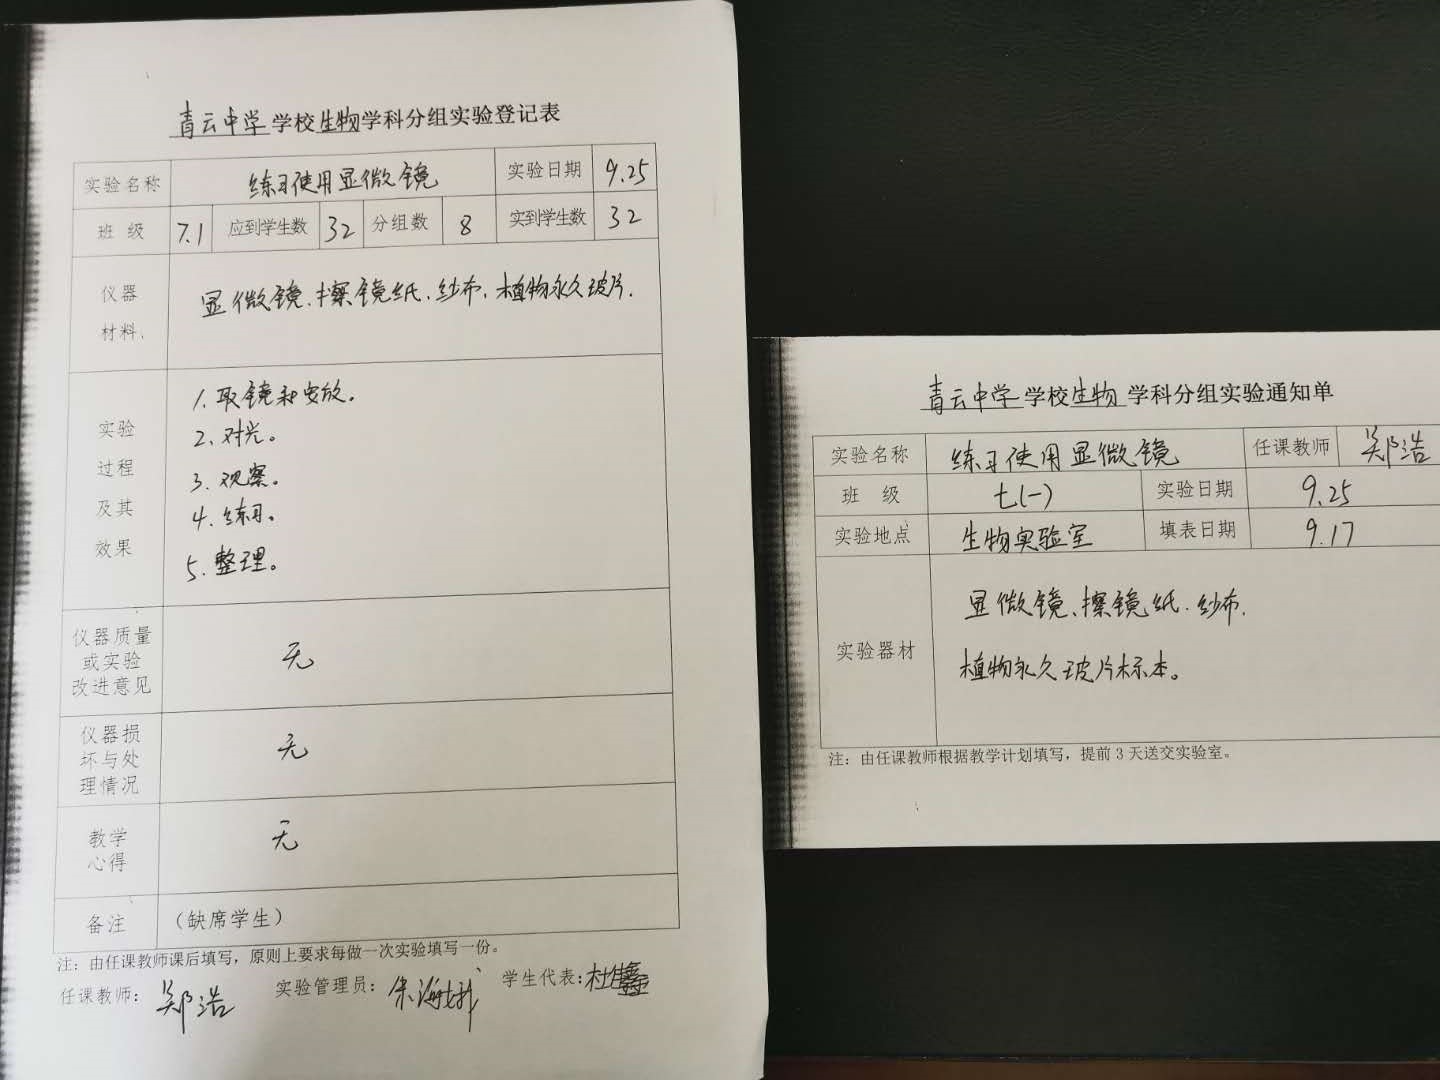 青云中学学校生物学科分组实验登记表
实验名称 练习使用显微镜 实验日期 9.25
班 级 7.1 应到学生数 32 分组数 8 实到学生数 32
仪器
材料
显微镜、擦镜纸、纱布、植物永久玻片.
实验
过程
及其
效果
1. 取镜和安放。
2. 对光。
3. 观察。
4. 练习。
5. 整理。
仪器质量
或实验
改进意见
无
仪器损
坏与处
理情况
无
教学
心得
无
备注 (缺席学生)
注：由任课教师课后填写，原则上要求每做一次实验填写一份。
任课教师： 郑浩 实验管理员： 朱海 学生代表： 杜
青云中学学校生物学科分组实验通知单
实验名称 练习使用显微镜 任课教师 郑浩
班 级 七(一) 实验日期 9.25
实验地点 生物实验室 填表日期 9.17
实验器材
显微镜、擦镜纸、纱布、
植物永久玻片标本。
注：由任课教师根据教学计划填写，提前3天送交实验室。